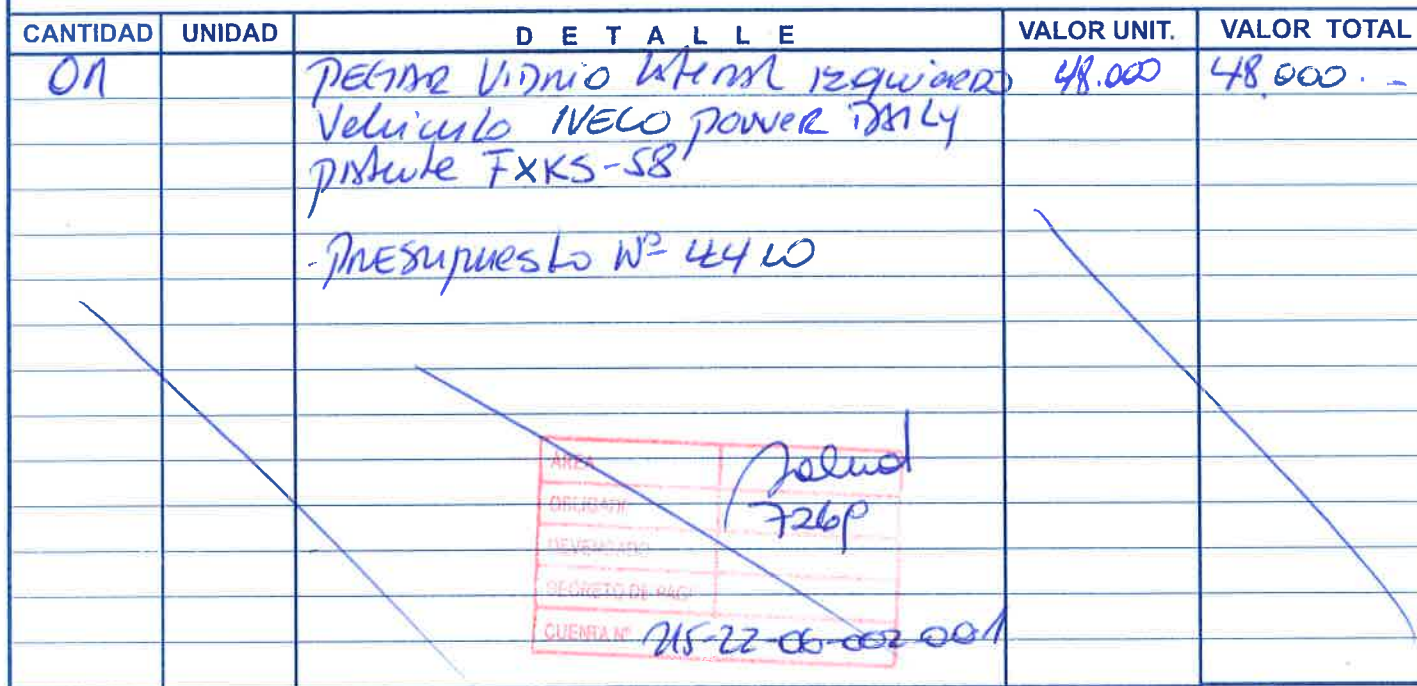 CANTIDAD UNIDAD DETALLE VALOR UNIT. VALOR TOTAL
01 PEGAR VIDRIO LATERAL IZQUIERDO 48.000 48.000.-
Vehiculo IVECO POWER DAILY
patente FXKS-58
-PRESUPUESTO Nº 4410
AREA Salud
OBLIGADO 726P
DEVENGADO
DECRETO DE PAGO
CUENTA Nº 215-22-06-002-001